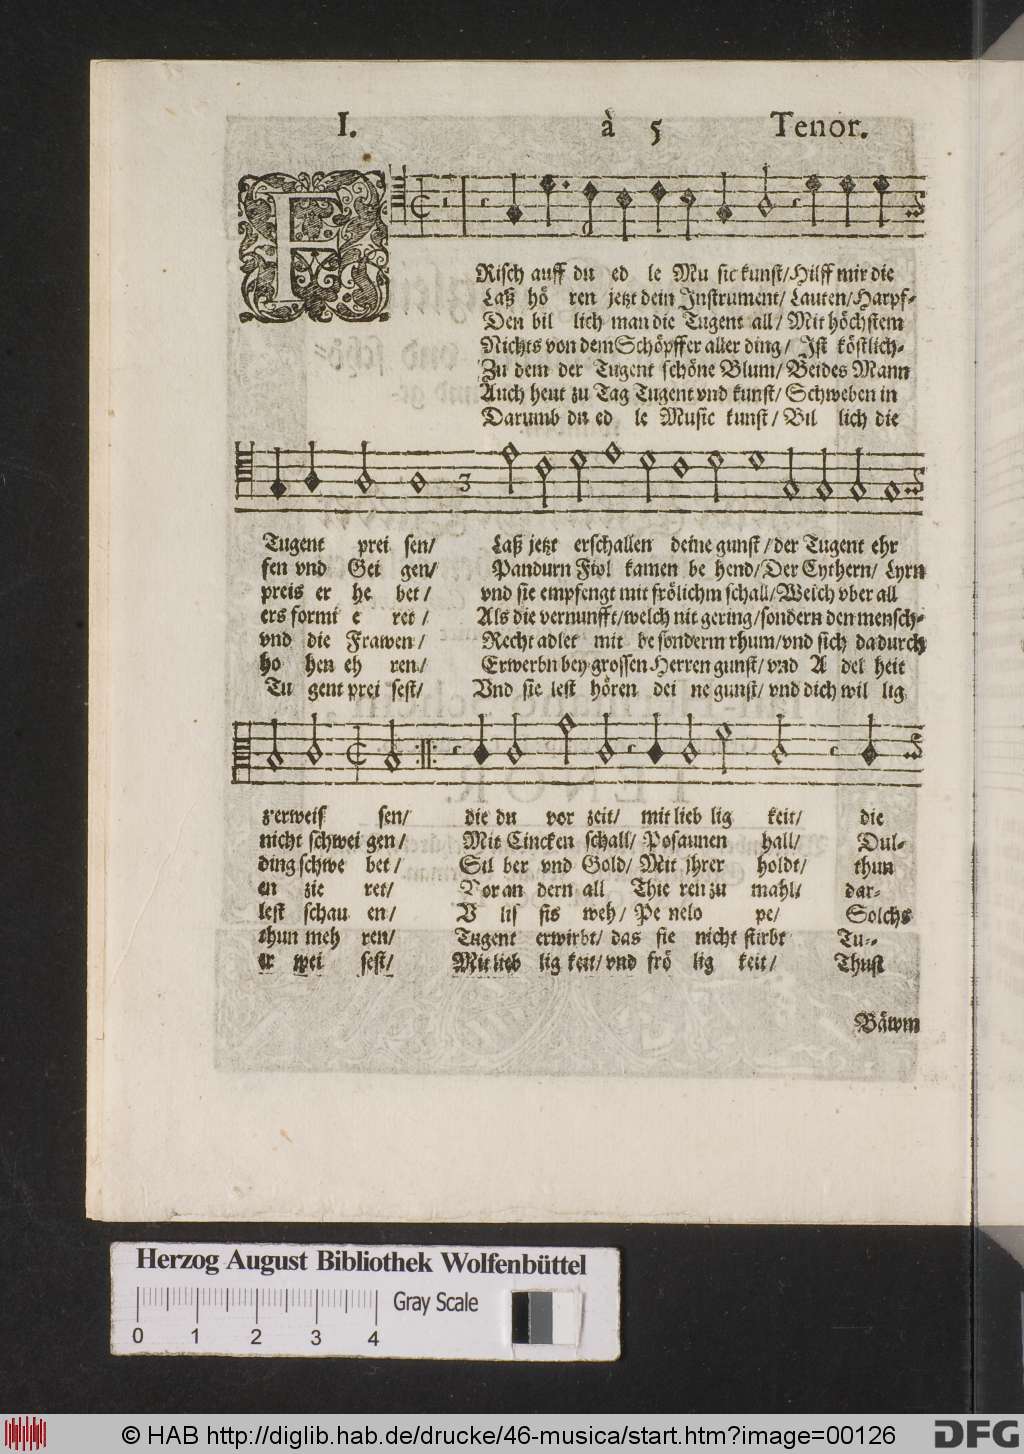 I. à 5 Tenor.
FRisch auff du ed le Mu sic kunst/Hilff mir die
Laß hö ren jetzt dein Instrument/ Lauten/Harpf-
Den bil lich man die Tugent all/ Mit höchstem
Nichts von dem Schöpffer aller ding/ Ist köstlich-
Zu dem der Tugent schöne Blum/ Beides Mann
Auch heut zu Tag Tugent vnd kunst/ Schweben in
Darumb du ed le Music kunst/ Bil lich die
3
Tugent prei sen/ Laß jetzt erschallen deine gunst/der Tugent ehr
fen vnd Gei gen/ Pandurn Fiol kamen be hend/Der Cythern/ Lyrn
preis er he bet/ vnd sie empfengt mit frölichm schall/Welch vber all
ers formi e ret/ Als die vernunfft/welch nit gering/sondern den mensch-
vnd die Frawen/ Recht adlet mit be sonderm rhum/vnd sich dadurch
ho hen eh ren/ Erwerbn bey grossen Herren gunst/ vnd A del heit
Tu gent prei sest/ Vnd sie lest hören dei ne gunst/ vnd dich wil lig
z'erweis sen/ die du vor zeit/ mit lieb lig keit/ die
nicht schwei gen/ Mit Cincken schall/ Posaunen hall/ Dul-
ding schwe bet/ Sil ber vnd Gold/ Mit jhrer holdt/ thun
en zie ret/ Vor an dern all Thie ren zu mahl/ dar-
lest schau en/ V lis sis weh/ Pe nelo pe/ Solchs
thun meh ren/ Tugent erwirbt/ das sie nicht stirbt Tu--
er wei sest/ Mit lieb lig keit/ vnd frö lig keit/ Thust
Bäwm
Herzog August Bibliothek Wolfenbüttel
Gray Scale
0 1 2 3 4
© HAB http://diglib.hab.de/drucke/46-musica/start.htm?image=00126
DFG